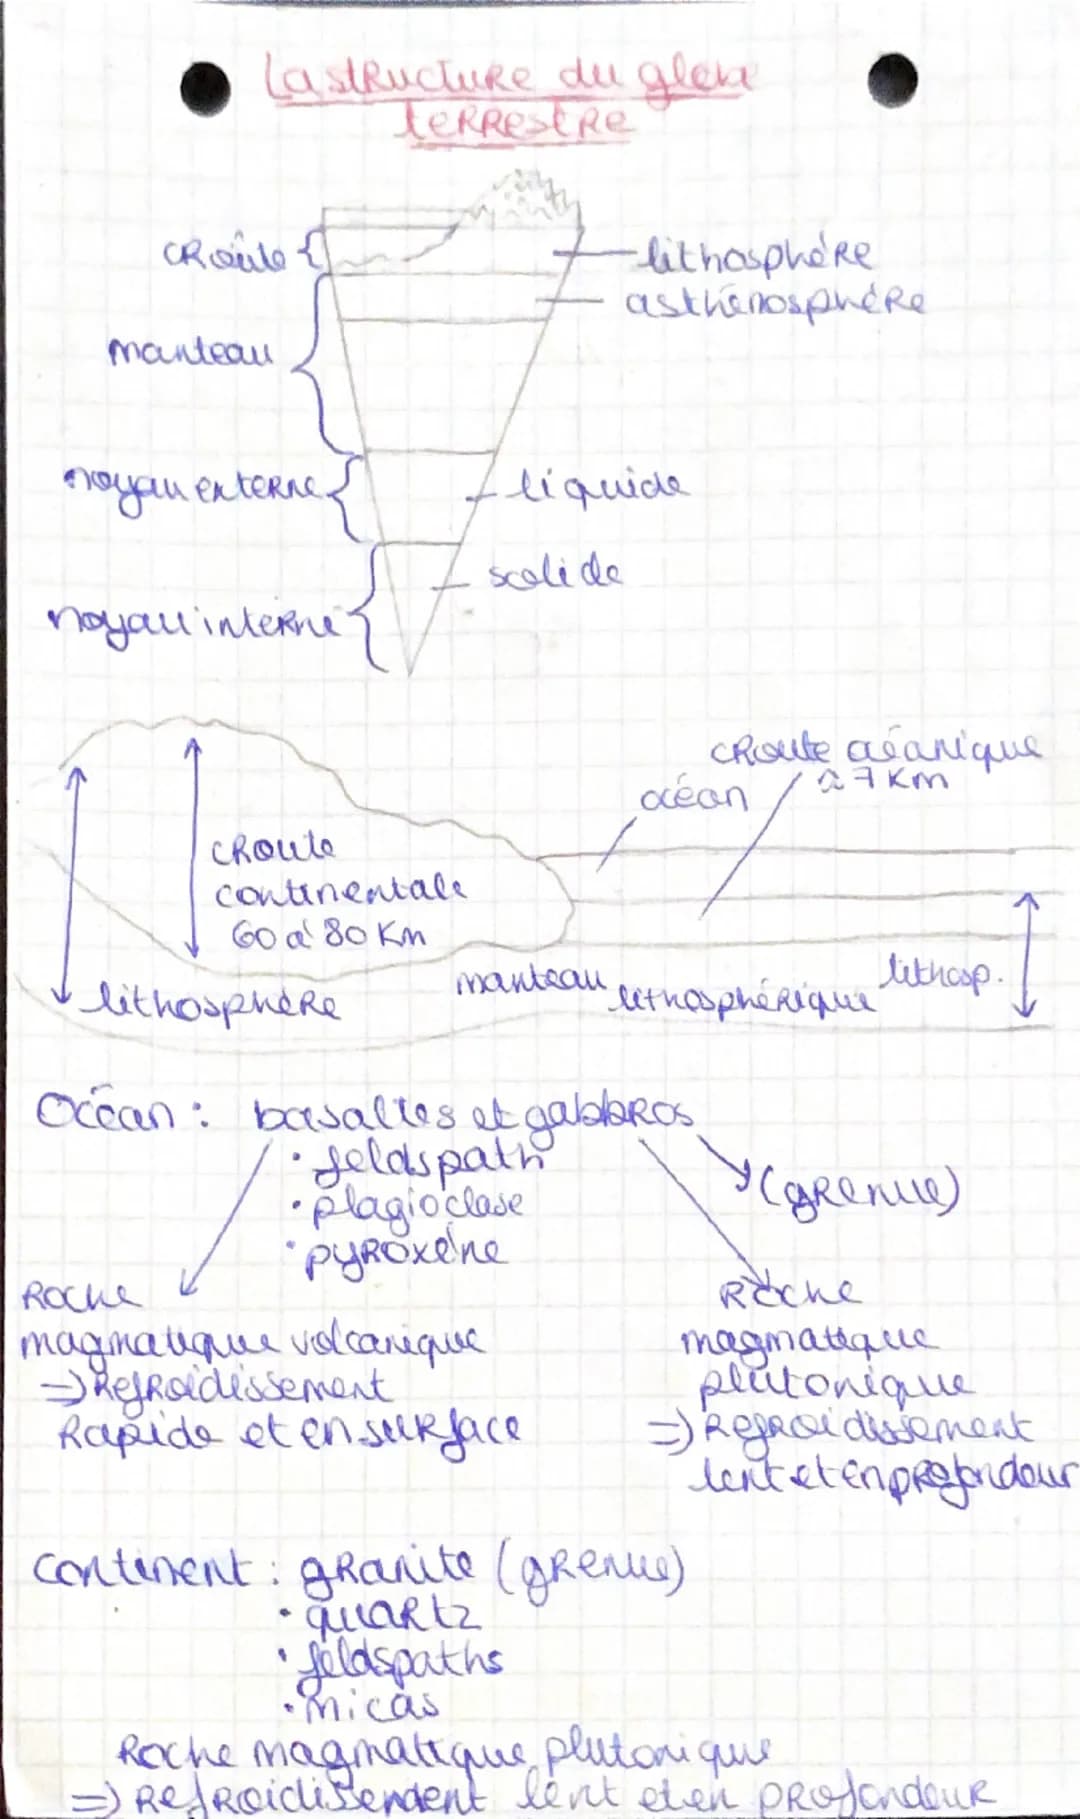 La structure du globe
terrestre
croûte
lithosphère
asthénosphère
manteau
noyau externe
liquide
solide
noyau interne
croute océanique
≈ 7 Km
océan
croute
continentale
60 à 80 Km
lithosphère
manteau lithosphérique
lithosp.
Océan : basaltes et gabbros
• feldspath
• plagioclase
• pyroxène
(grenue)
Roche
magmatique volcanique
=> Refroidissement
Rapide et en surface
Roche
magmatique
plutonique
=> Refroidissement
lent et en profondeur
Continent : granite (grenue)
• quartz
• feldspaths
• micas
Roche magmatique plutonique
=> Refroidissement lent et en profondeur